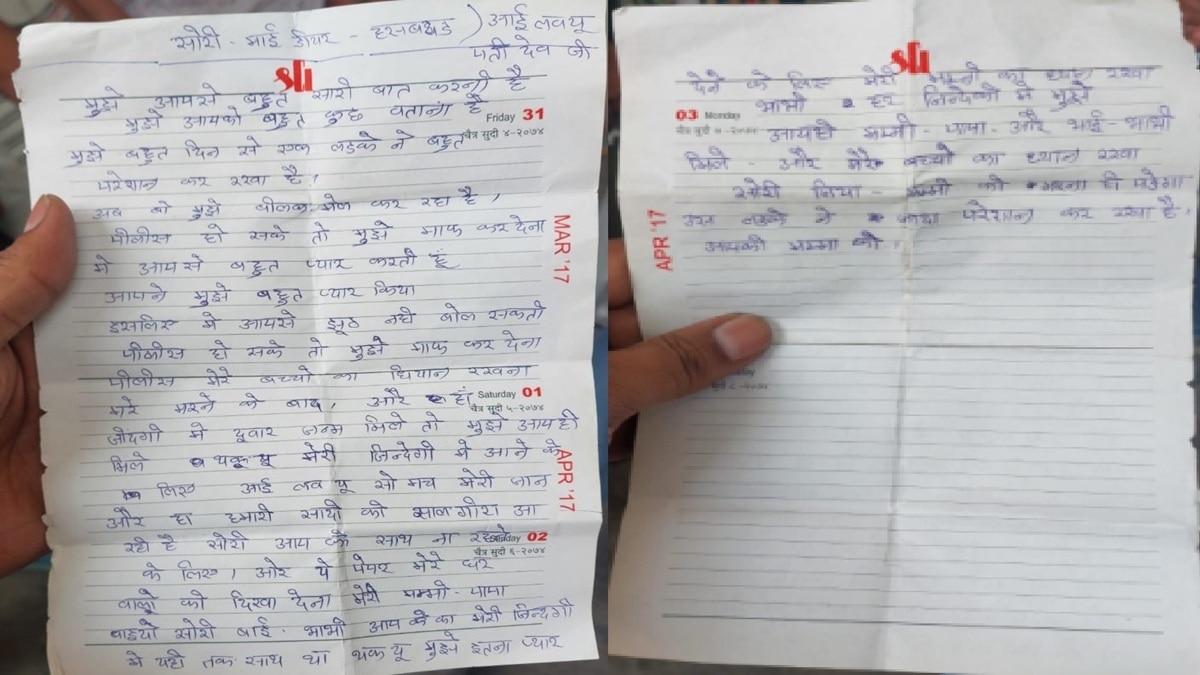 सोरी - माई डीयर - हसबेंड ) आई लव यू
पती देव जी
sti
मुझे आपसे बहुत सारी बात करनी है
मुझे आपको बहुत कुछ बताना है
Friday 31
चैत्र सुदी ४-२०७४
मुझे बहुत दिन से एक लडके ने बहुत
परेशान कर रखा है,
अब वो मुझे बीलक मेल कर रहा है,
MAR '17
पीलीस हो सके तो मुझे माफ कर देना
मे आपसे बहुत प्यार करती हूं
आपने मुझे बहुत प्यार किया
इसलिए मे आपसे झूठ नही बोल सकती
पीलीस हो सके तो मुझे माफ कर देना
पीलीस मेरे बच्चो का धियान रखना
Saturday 01
चैत्र सुदी ५-२०७४
मेरे मरने के बाद, और हां
जींदगी मे दूबार जन्म मिले तो मुझे आप ही
मिले थकू यू मेरी जिन्देगी मे आने के
APR '17
लिए आई लव यू सो मच मेरी जान
और हा हमारी सादी की सालगीरा आ
रही है सोरी आप के साथ ना रहने
02
चैत्र सुदी ६-२०७४
के लिए, ओर ये पेपर मेरे घर
वालो को दिखा देना मेरी मम्मी-पापा
सोरी बाई-भाभी आप का मेरी जिन्दगी
मे यही तक साथ था थक यू मुझे इतना प्यार
sti
देने के लिए मेरी ध्यान रखा
03 Monday
भाभी हर जिन्देगी मे मुझे
आपही मम्मी-पापा-और भाई-भाभी
मिले - और मेरे बच्चो का ध्यान रखा
सोरी मम्मी को मरना ही पडेगा
APR '17
उस लडके ने परेशान कर रखा है,
आपकी मम्मी को,